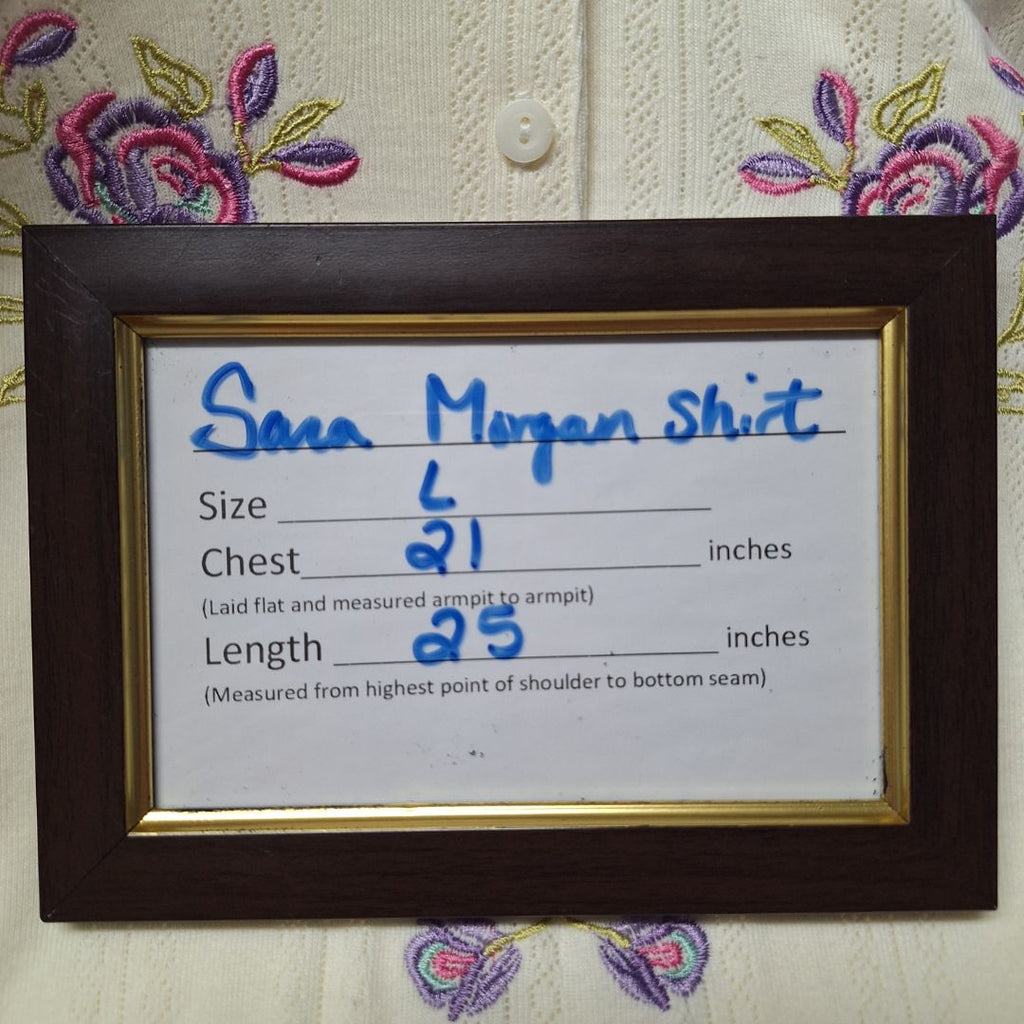 Sara Morgan Shirt
Size L
Chest 21 inches
(Laid flat and measured armpit to armpit)
Length 25 inches
(Measured from highest point of shoulder to bottom seam)